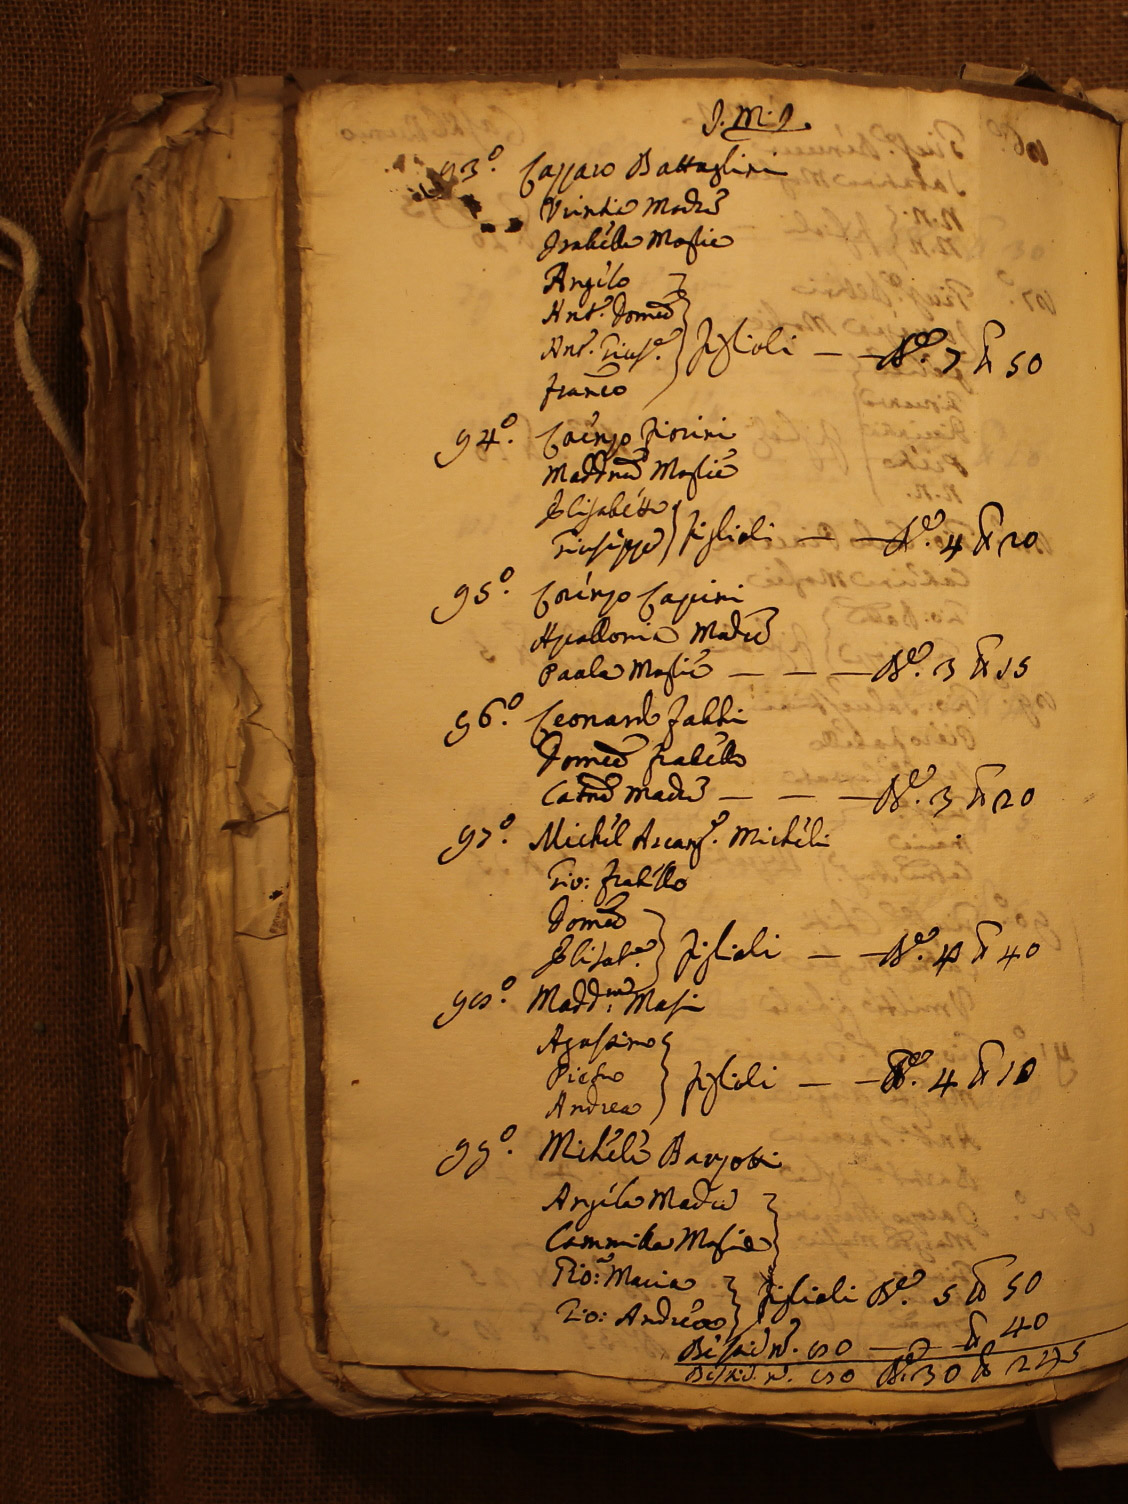 J. M. J.
93º. Gasparo Battaglini
Madre
Isabella Moglie
Angelo
Ant.º Domco
Ant.º Gius.e
Franco } figlioli — — Nº. 7 50
94º. Fiorini
Maddna Moglie
Elisabetta
Giuseppe } figlioli — — Nº. 4 20
95º. Lorenzo Capini
Apollonia Madre
Paola Moglie — — — Nº. 3 15
96º. Leonardo Fabbri
Domco fratello
Catna Madre — — — Nº. 3 20
97º. Michel Arcang.º Micheli
Gio: fratello
Domco
Elisab.a } figlioli — — Nº. 4 40
98º. Madd.na Masi
Agostino
Pietro
Andrea } figlioli — — Nº. 4 10
99º. Michele
Angela Madre
Cammilla Moglie
Gio: Maria
Gio: Andrea } figlioli Nº. 5 50
nº. 80 — 40
nº. 80 Nº. 30 245